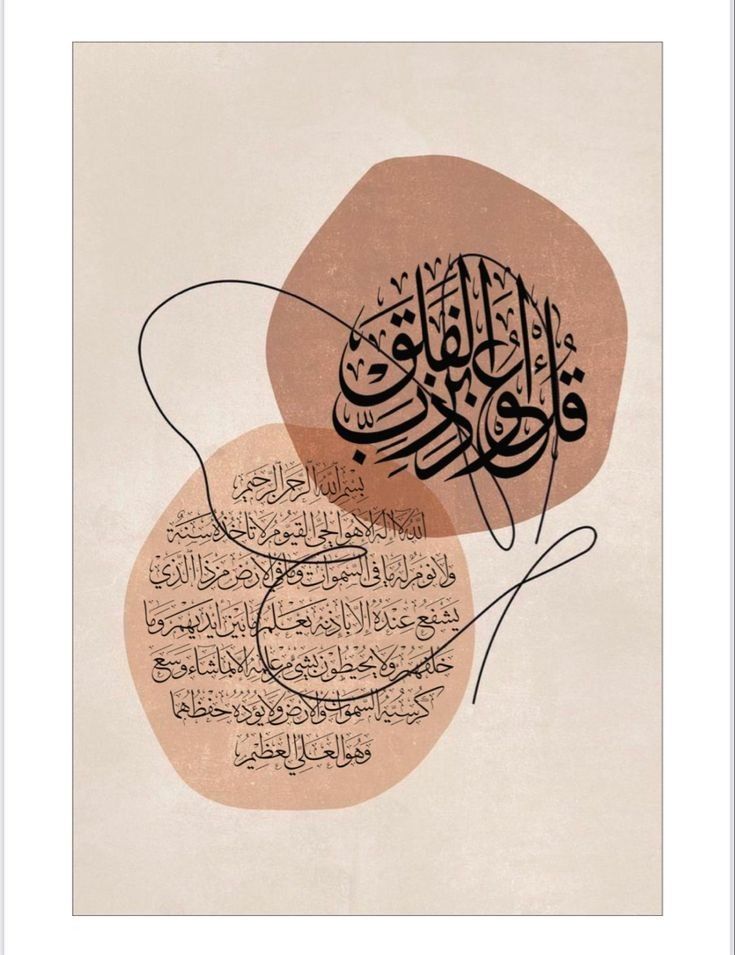 قُلْ أَعُوذُ بِرَبِّ الْفَلَقِ
بِسْمِ اللَّهِ الرَّحْمَنِ الرَّحِيمِ
اللَّهُ لَا إِلَهَ إِلَّا هُوَ الْحَيُّ الْقَيُّومُ لَا تَأْخُذُهُ سِنَةٌ
وَلَا نَوْمٌ لَهُ مَا فِي السَّمَوَاتِ وَمَا فِي الْأَرْضِ مَنْ ذَا الَّذِي
يَشْفَعُ عِنْدَهُ إِلَّا بِإِذْنِهِ يَعْلَمُ مَا بَيْنَ أَيْدِيهِمْ وَمَا
خَلْفَهُمْ وَلَا يُحِيطُونَ بِشَيْءٍ مِنْ عِلْمِهِ إِلَّا بِمَا شَاءَ وَسِعَ
كُرْسِيُّهُ السَّمَوَاتِ وَالْأَرْضَ وَلَا يَئُودُهُ حِفْظُهُمَا
وَهُوَ الْعَلِيُّ الْعَظِيمُ